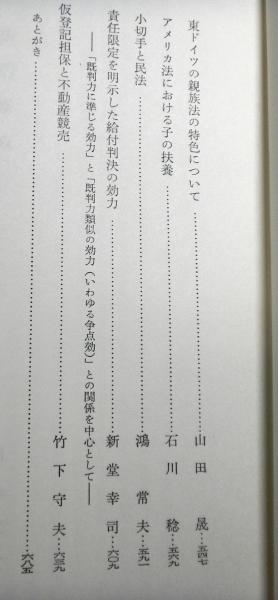 東ドイツの親族法の特色について……山田 晟…五四七
アメリカ法における子の扶養……石川 稔…五六九
小切手と民法……鴻 常夫…五九一
責任限定を明示した給付判決の効力……新堂幸司…六〇九
――「既判力に準じる効力」と「既判力類似の効力(いわゆる争点効)」との関係を中心として――
仮登記担保と不動産競売……竹下守夫…六三九
あとがき……六八五